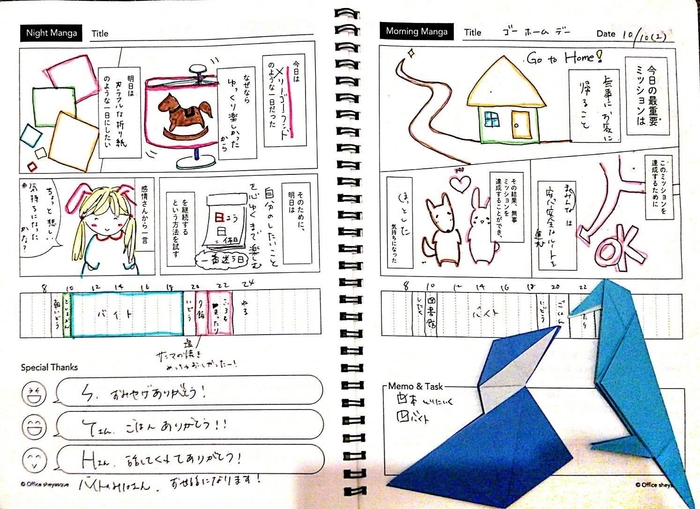 Night Manga
Title
今日は
メリーゴーランド
のような一日だった
なぜなら
ゆっくり楽しかった
から
明日は
カラフルな折り紙
のような一日にしたい
そのために、
明日は
自分のしたいこと
を心ゆくまで楽しむ
を継続する
という方法を試す
日こう
日
=休日
感情さんから一言
ちょっと悲しい
気持ちになった
かな?
8 10 12 14 16 18 20 22 24
バイト
いどう
夕飯
Special Thanks
S. おみやげありがとう!
Yさん、ごはんありがとう!!
Hさん、話してくれてありがとう!
© Office sheya
Morning Manga
Title ゴー ホーム デー
Date 10/10(2)
今日の最重要
ミッションは
無事に お家に
帰ること
Go to Home!
このミッションを
達成するために
安心安全なルートを
進む
OK
その結果、無事
ミッションを
達成することができ、
ほっとした
気持ちになった
8 10 12 14 16 18 20 22 24
したく
図書館
バイト
いどう
ごはん
Memo & Task
バイト
© Office sheya